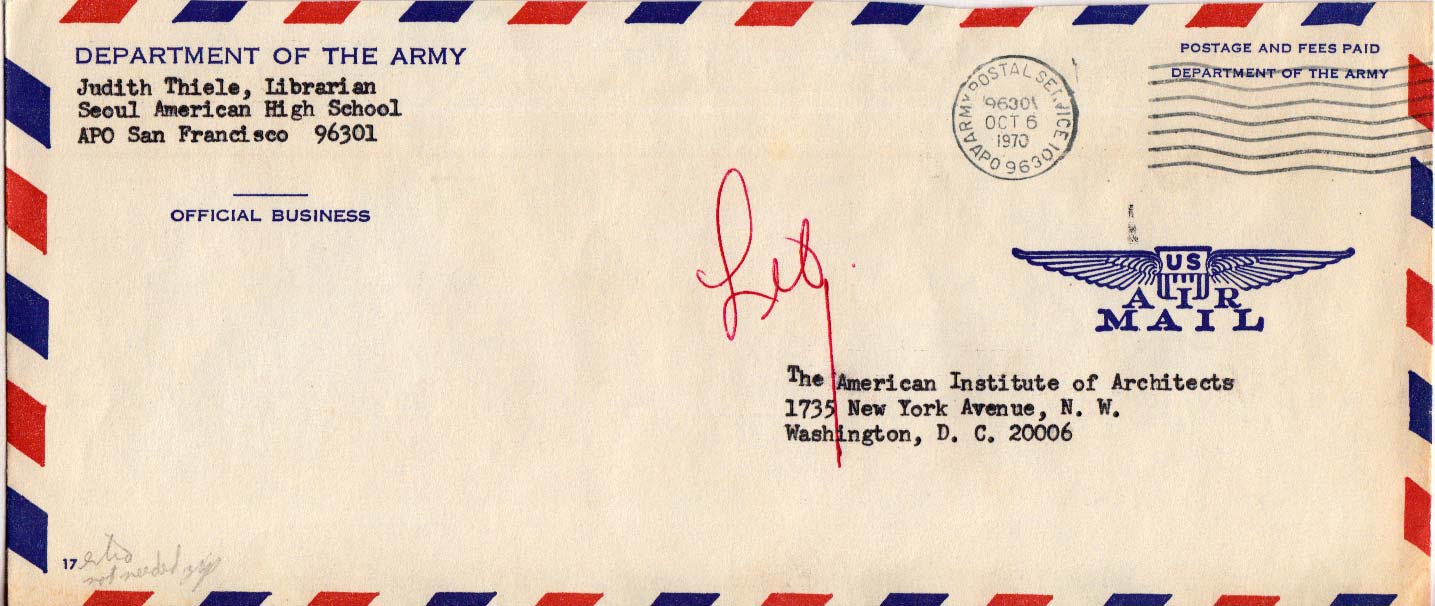 DEPARTMENT OF THE ARMY
Judith Thiele, Librarian
Seoul American High School
APO San Francisco 96301
OFFICIAL BUSINESS
POSTAGE AND FEES PAID
DEPARTMENT OF THE ARMY
ARMY POSTAL SERVICE
APO 96301
96301
OCT 6
1970
US
AIR
MAIL
The American Institute of Architects
1735 New York Avenue, N. W.
Washington, D. C. 20006
17
not needed